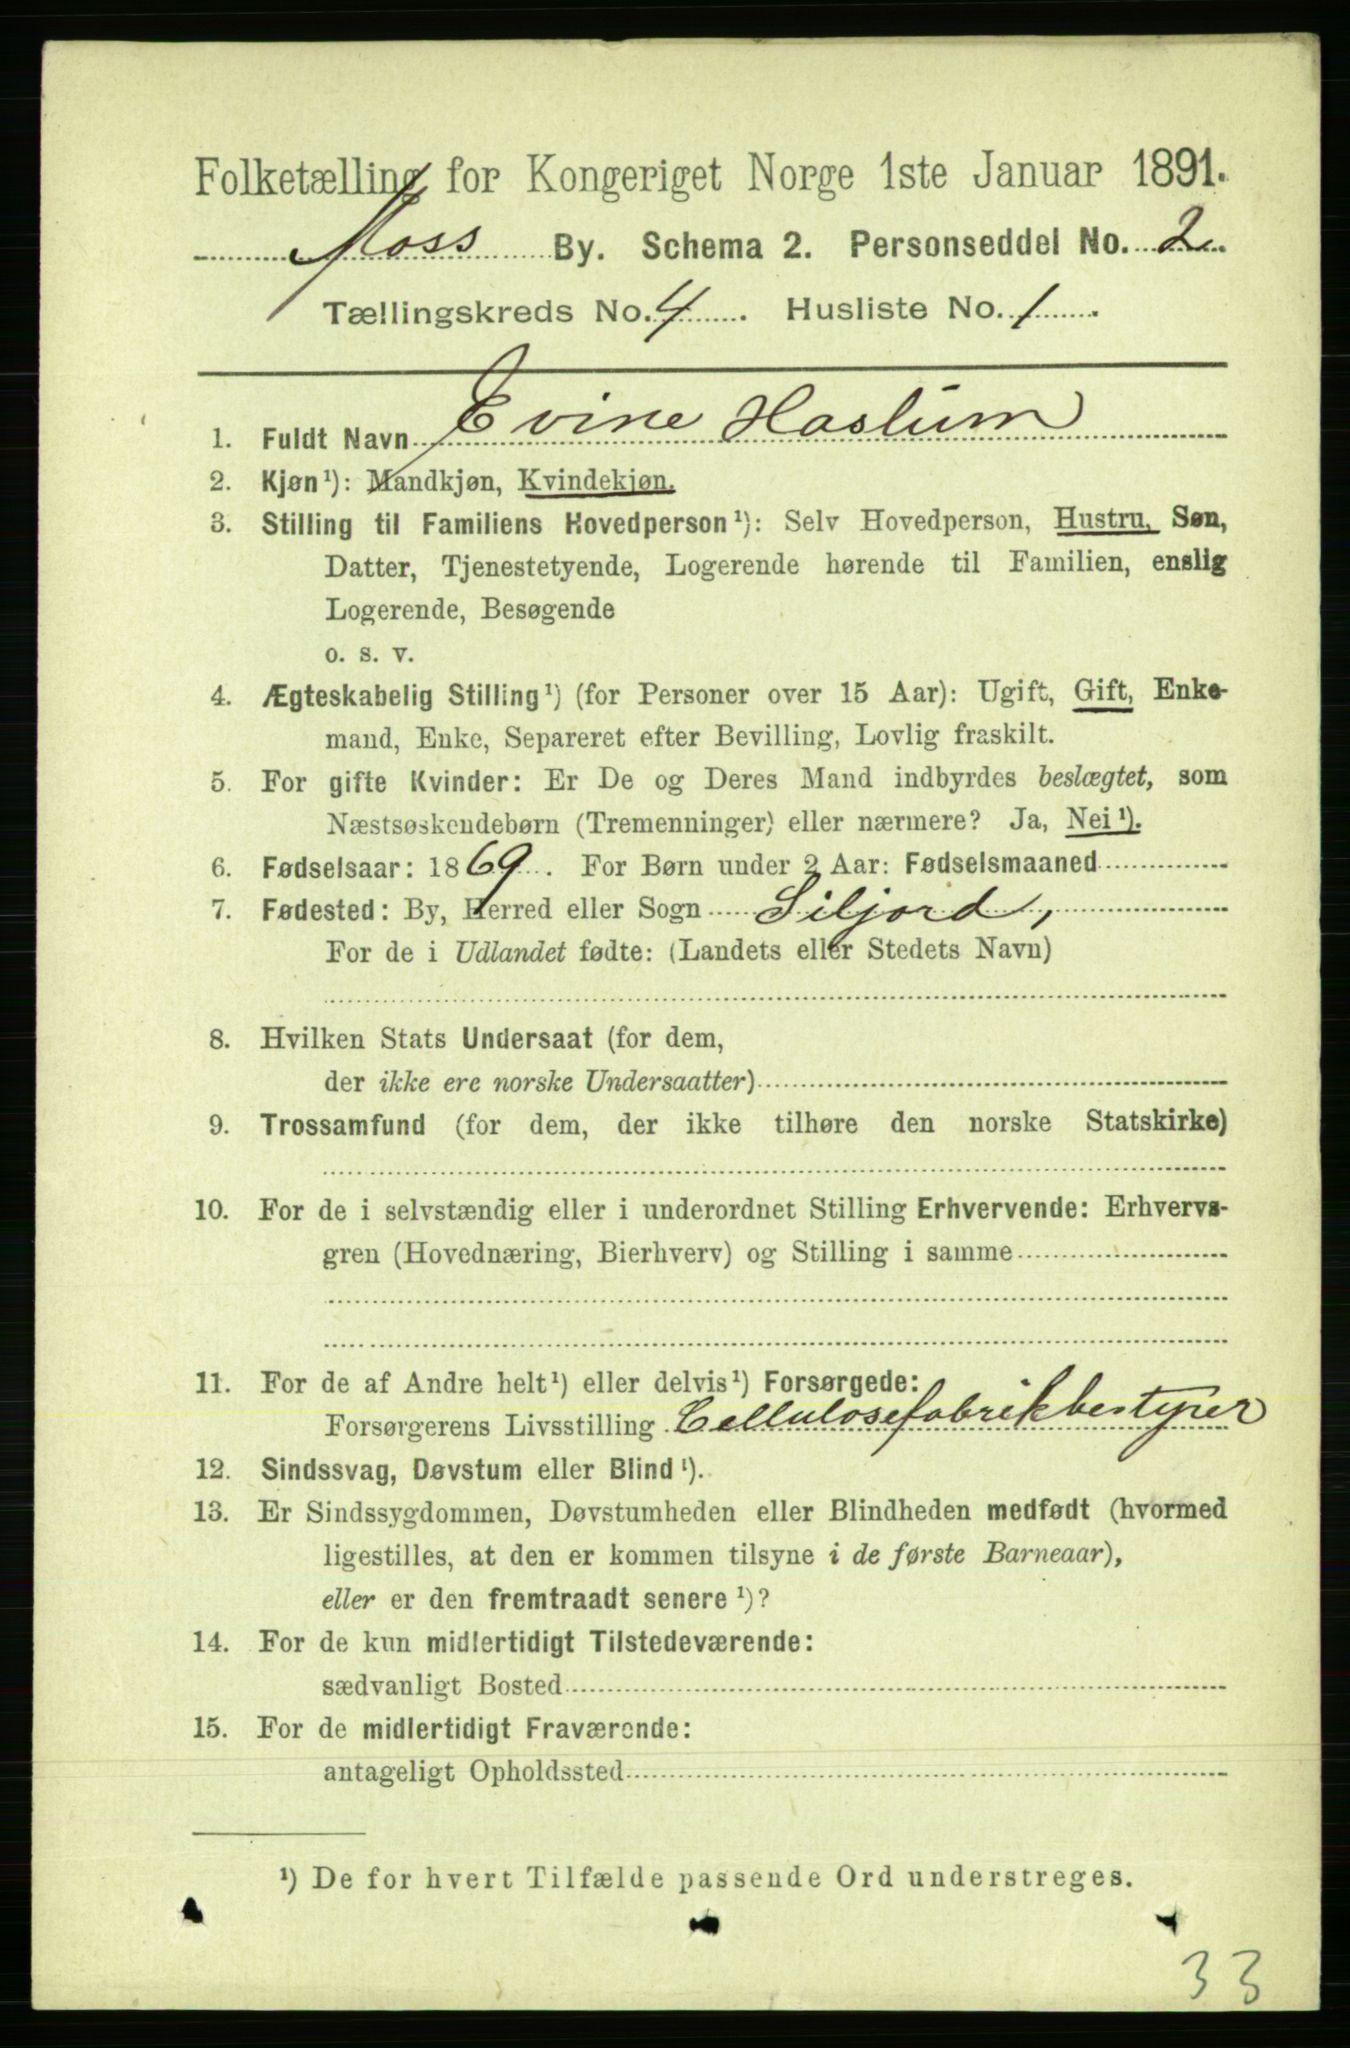 Folketælling for Kongeriget Norge 1ste Januar 1891.
Moss By. Schema 2. Personseddel No. 2
Tællingskreds No. 4. Husliste No. 1.
1. Fuldt Navn Evine Haslum
2. Kjøn¹): Mandkjøn, Kvindekjøn.
3. Stilling til Familiens Hovedperson¹): Selv Hovedperson, Hustru, Søn,
Datter, Tjenestetyende, Logerende hørende til Familien, enslig
Logerende, Besøgende
o. s. v.
4. Ægteskabelig Stilling¹) (for Personer over 15 Aar): Ugift, Gift, Enke-
mand, Enke, Separeret efter Bevilling, Lovlig fraskilt.
5. For gifte Kvinder: Er De og Deres Mand indbyrdes beslægtet, som
Næstsøskendebørn (Tremenninger) eller nærmere? Ja, Nei¹).
6. Fødselsaar: 1869. For Børn under 2 Aar: Fødselsmaaned
7. Fødested: By, Herred eller Sogn Siljord,
For de i Udlandet fødte: (Landets eller Stedets Navn)
8. Hvilken Stats Undersaat (for dem,
der ikke ere norske Undersaatter)
9. Trossamfund (for dem, der ikke tilhøre den norske Statskirke)
10. For de i selvstændig eller i underordnet Stilling Erhvervende: Erhvervs-
gren (Hovednæring, Bierhverv) og Stilling i samme
11. For de af Andre helt¹) eller delvis¹) Forsørgede:
Forsørgerens Livsstilling Cellulosefabrikbestyrer
12. Sindssvag, Døvstum eller Blind¹).
13. Er Sindssygdommen, Døvstumheden eller Blindheden medfødt (hvormed
ligestilles, at den er kommen tilsyne i de første Barneaar),
eller er den fremtraadt senere¹)?
14. For de kun midlertidigt Tilstedeværende:
sædvanligt Bosted
15. For de midlertidigt Fraværende:
antageligt Opholdssted
¹) De for hvert Tilfælde passende Ord understreges.
33